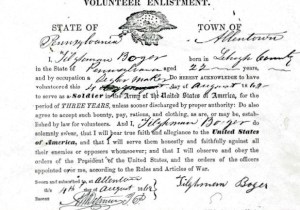 VOLUNTEER ENLISTMENT.
STATE OF TOWN OF
Pennsylvania Allentown
I, Tilghman Boger born in Lehigh County
in the State of Pennsylvania aged 22 years,
and by occupation a Do HEREBY ACKNOWLEDGE to have
volunteered this 4 day of August 1862
to serve as a Soldier in the Army of the United States of America, for the
period of THREE YEARS, unless sooner discharged by proper authority: Do also
agree to accept such bounty, pay, rations, and clothing, as are, or may be, estab-
lished by law for volunteers. And I, Tilghman Boger do
solemnly swear, that I will bear true faith and allegiance to the United
States of America, and that I will serve them honestly and faithfully against
all their enemies or opposers whomsoever; and that I will observe and obey the
orders of the President of the United States, and the orders of the officers
appointed over me, according to the Rules and Articles of War.
Sworn and subscribed to, at Allentown
this 4th day of August 1862 Tilghman Boger